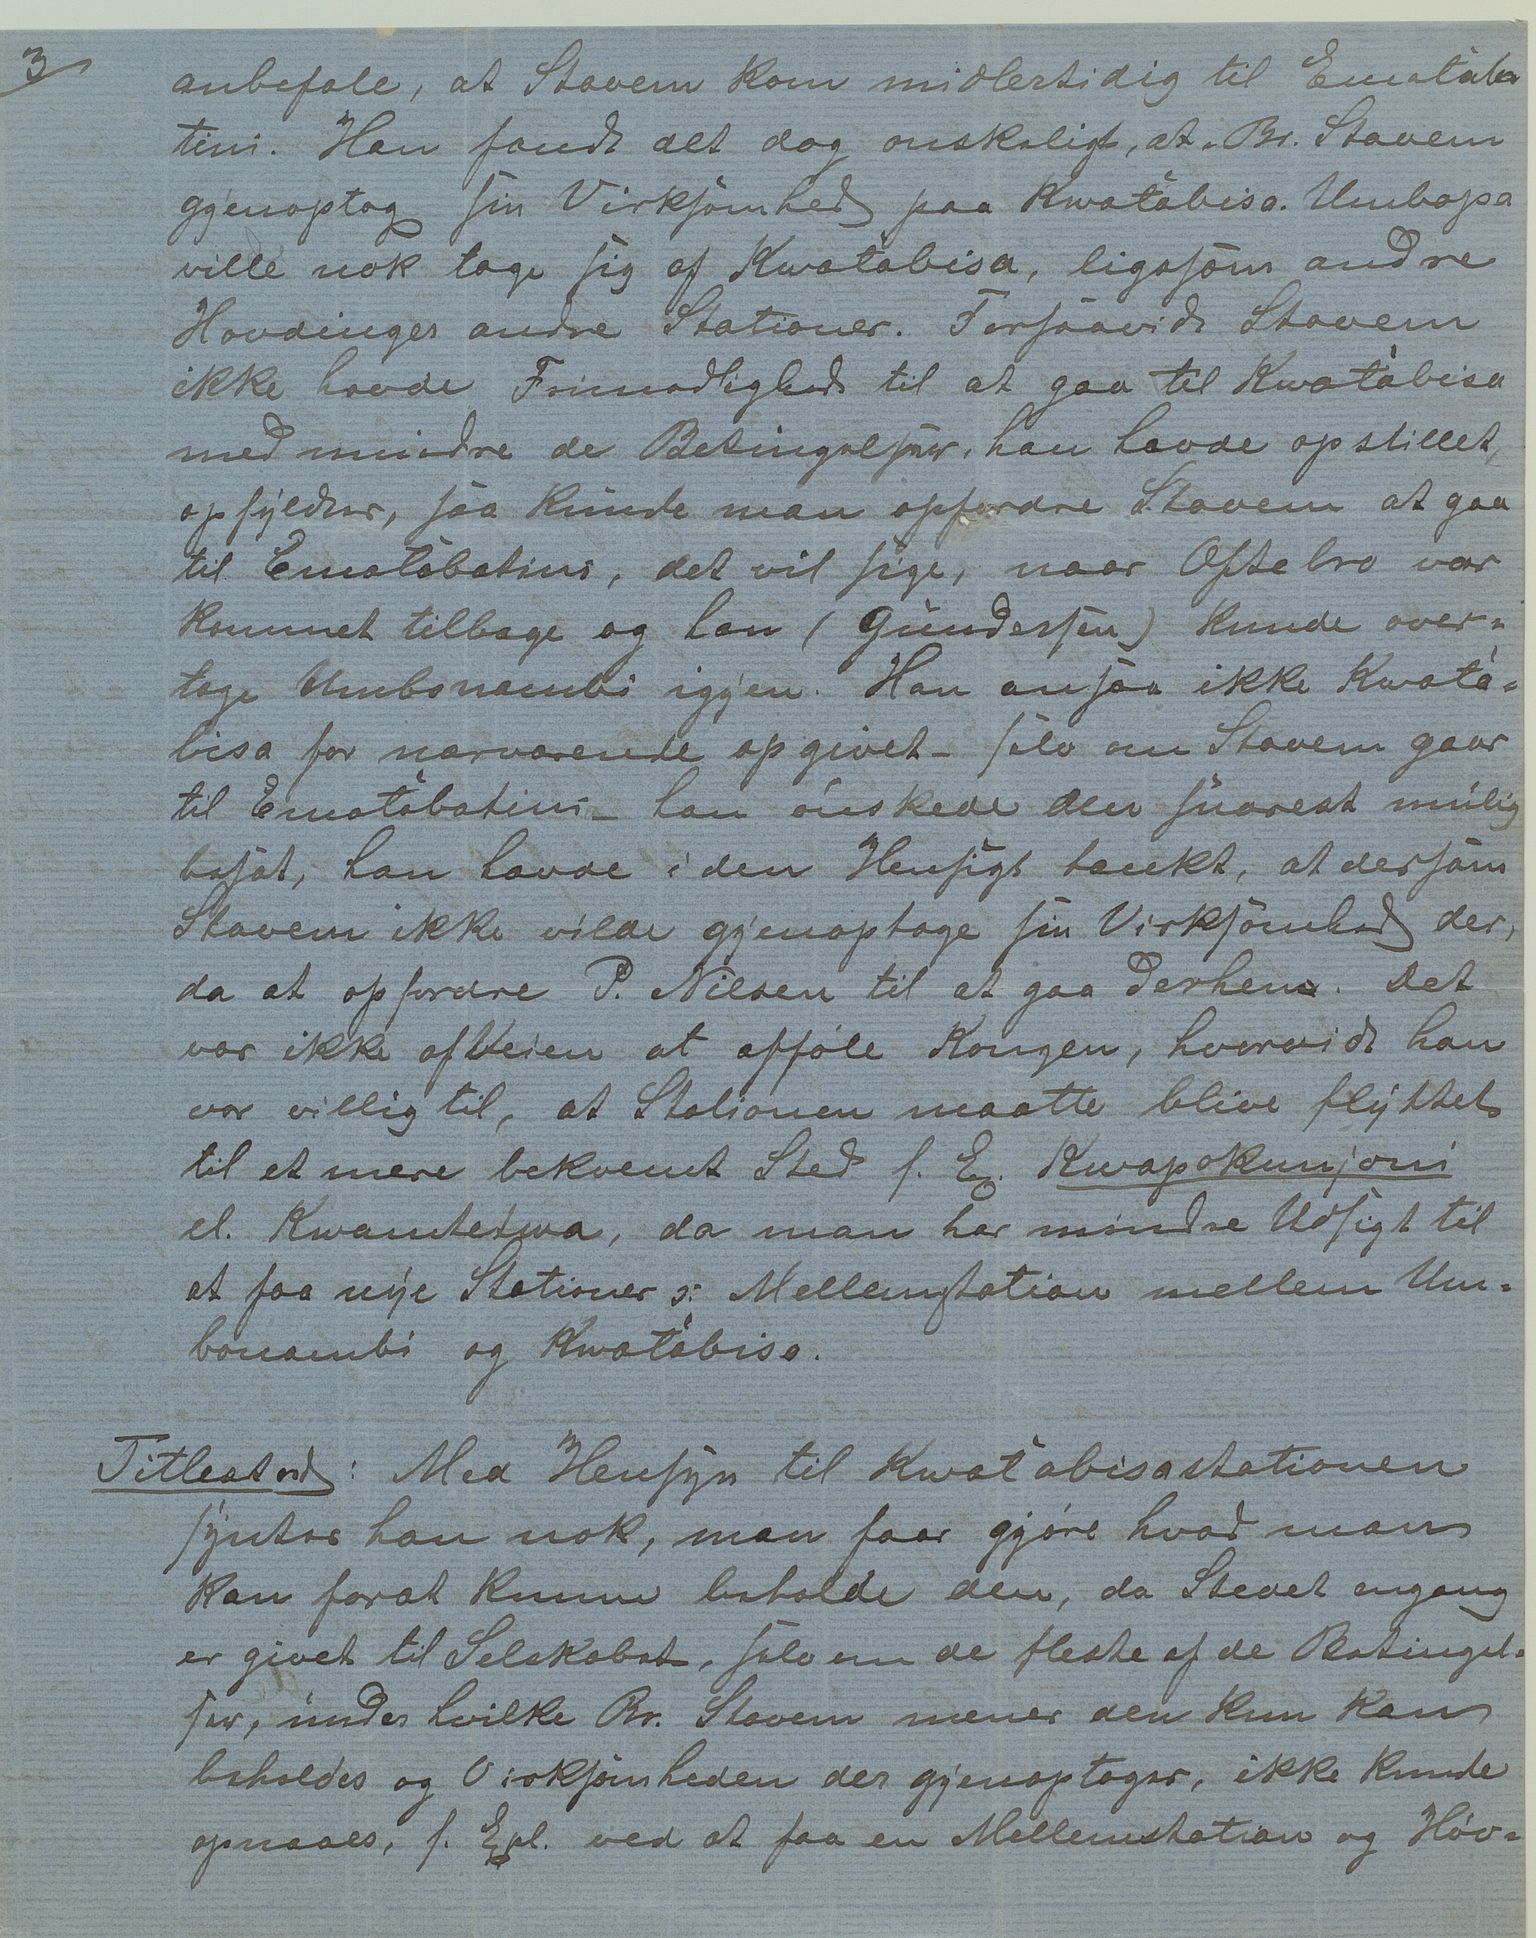 3
anbefale, at Stavem kom midlertidig til Emataba
tini. Han fandt det dog ønskeligt, at Br. Stavem
gjenoptog sin Virksomhed paa Kwatábisa. Umbopa
ville nok tage sig af Kwatábisa, ligesom andre
Høvdinger andre Stationer. Forsaavidt Stavem
ikke havde Frimodighed til at gaa til Kwatábisa
med mindre de Betingelser, han havde opstillet,
opfyldtes, saa kunde man opfordre Stavem at gaa
til Ematabatini, det vil sige, naar Oftebro var
kommet tilbage og han (Gundersen) kunde over-
tage Umbonambi igjen. Han ansaa ikke Kwatá-
bisa for nærværende opgivet – selv om Stavem gaar
til Ematábatini – han ønskede den snarest mulig
besat, han havde i den Hensigt tænkt, at dersom
Stavem ikke vilde gjenoptage sin Virksomhed der,
da at opfordre P. Nilsen til at gaa derhen. Det
var ikke afveien at afføle Kongen, hvorvidt han
var villig til, at Stationen maatte blive flyttet
til et mere bekvemt Sted f. Ex. Kwapokunjoni
el. Kwamtetwa, da man har mindre Udsigt til
at faa nye Stationer ɔ: Mellemstation mellem Um-
bonambi og Kwatábisa.
Titlestad: Med Hensyn til Kwatábisastationen
syntes han nok, man faar gjøre hvad man
kan forat kunne beholde den, da Stedet engang
er givet til Selskabet, selv om de fleste af de Betingel-
ser, under hvilke Br. Stavem mener den kun kan
beholdes og Virksomheden der gjenoptages, ikke kunde
opnaaes, f. Expl. ved at faa en Mellemstation og Høv-